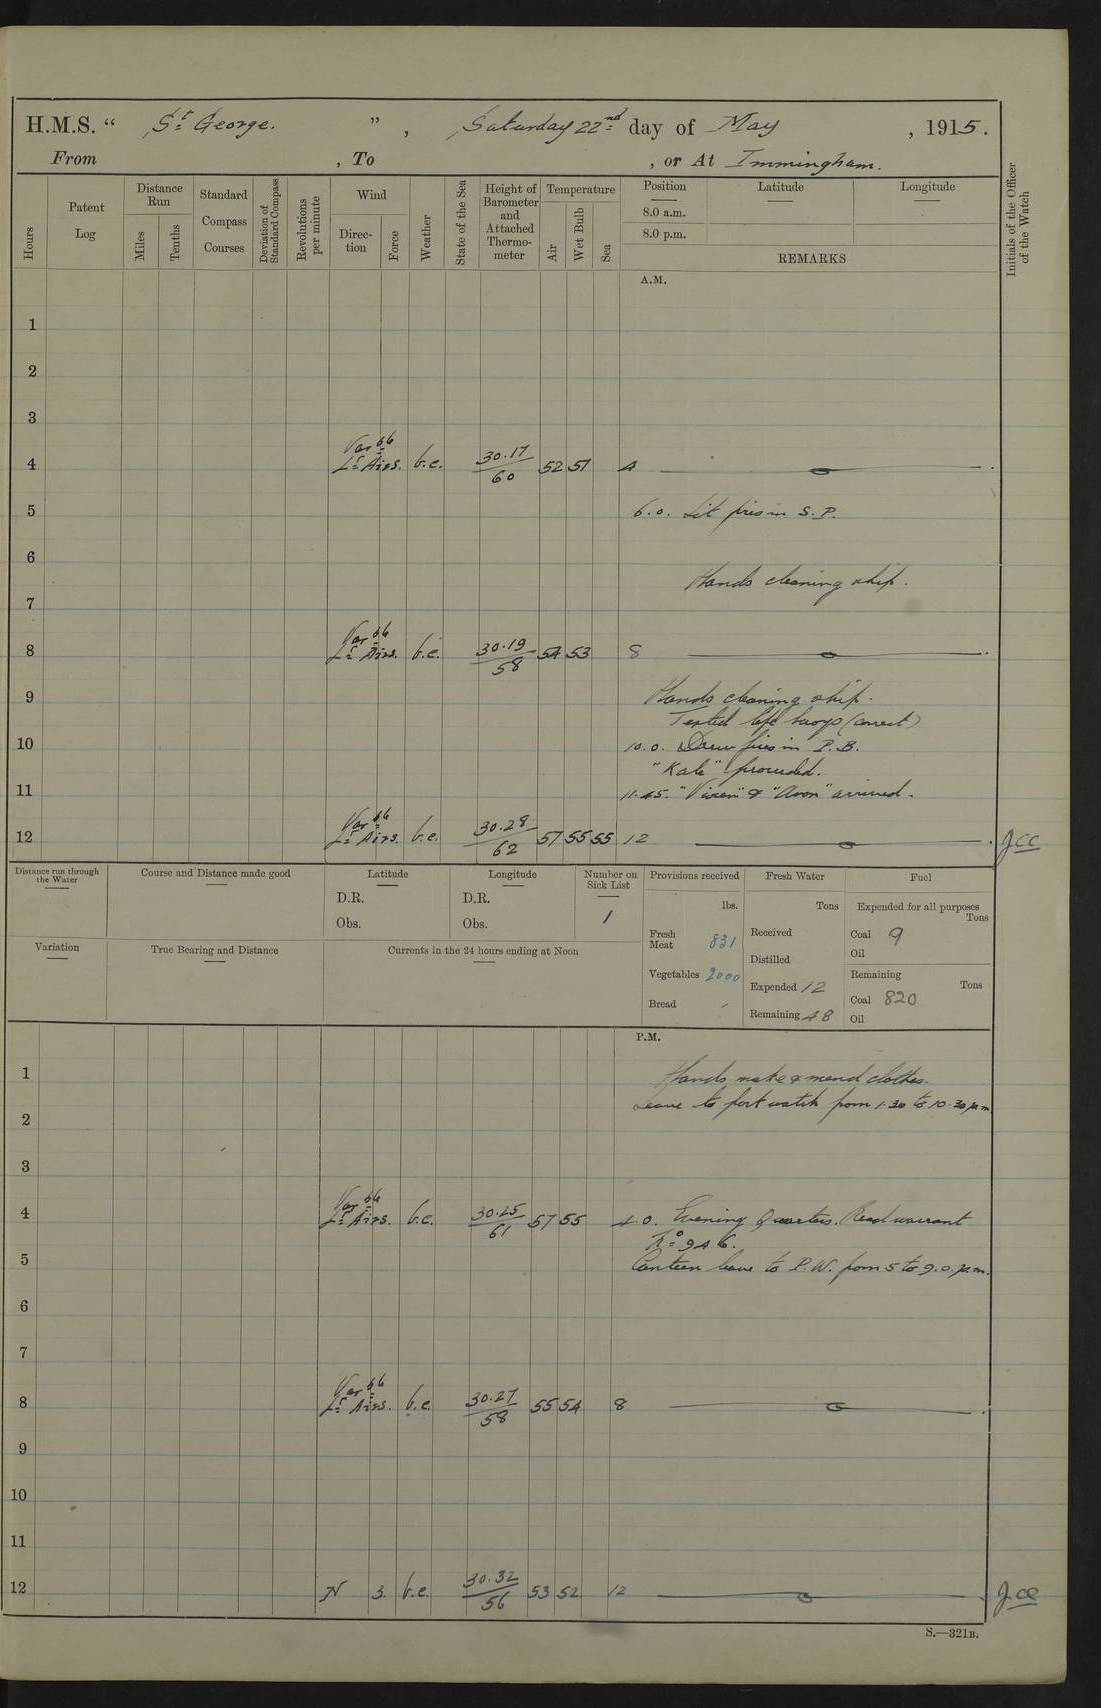 H.M.S. " St George. ", Saturday 22nd day of May, 1915.
From , To , or At Immingham.
Hours
Patent Log
Distance Run
Miles
Tenths
Standard Compass Courses
Deviation of Standard Compass
Revolutions per minute
Wind
Direction
Force
Weather
State of the Sea
Height of Barometer and Attached Thermometer
Temperature
Air
Wet Bulb
Sea
Position
Latitude
Longitude
8.0 a.m.
8.0 p.m.
REMARKS
Initials of the Officer of the Watch
A.M.
1
2
3
4 Var ble Lt Airs. b.c. 30.17/60 52 51 4
5 6.0. Lit fires in S.P.
6
Hands cleaning ship.
7
8 Var ble Lt Airs. b.c. 30.19/58 54 53 8
9 Hands cleaning ship.
Tested life buoys (correct)
10 10.0. Drew fires in P.B.
"Kale" proceeded.
11 11.45. "Vixen" & "Avon" arrived.
12 Var ble Lt Airs. b.c. 30.28/62 57 55 55 12 JCC
Distance run through the Water
Course and Distance made good
Latitude
D.R.
Obs.
Longitude
D.R.
Obs.
Number on Sick List
1
Provisions received
lbs.
Fresh Meat 831
Vegetables 2000
Bread
Fresh Water
Tons
Received
Distilled
Expended 12
Remaining 48
Fuel
Expended for all purposes
Tons
Coal 9
Oil
Remaining
Tons
Coal 820
Oil
Variation
True Bearing and Distance
Currents in the 24 hours ending at Noon
P.M.
1 Hands make & mend clothes.
Leave to port watch from 1.30 to 10.30 p.m.
2
3
4 Var ble Lt Airs. b.c. 30.25/61 57 55 4.0. Evening Quarters. Read warrant
No 946.
5 Canteen leave to P.W. from 5 to 9.0.p.m.
6
7
8 Var ble Lt Airs. b.c. 30.27/58 55 54 8
9
10
11
12 N 3. b.c. 30.32/56 53 52 12
S.—321B.